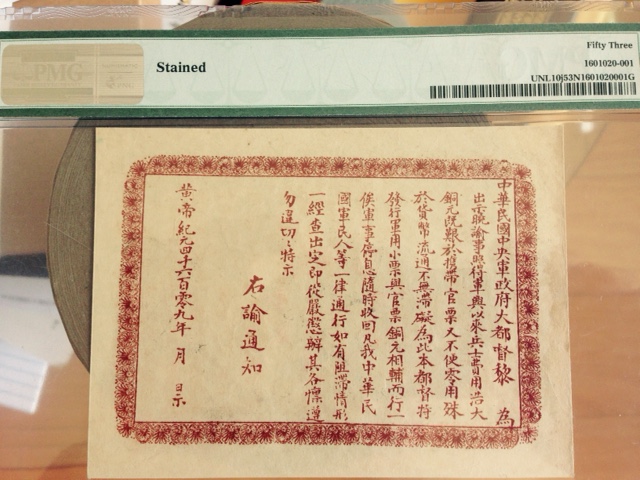 PMG
Stained
Fifty Three
1601020-001
UNL10j53N1601020001G
中華民國中央軍政府大都督黎 為
出示曉諭事照得軍興以來兵士費用浩大
銅元既艱於携帶官票又不便零用殊
於貨幣流通不無滯礙為此本都督特
發行軍用小票與官票銅元相輔而行一
俟軍事停息隨時收回凡我中華民
國軍民人等一律通行如有阻滯情形
一經查出定即從嚴懲辦其各懍遵
勿違切々特示
右諭通知
黃帝紀元四千六百零九年 月 日示